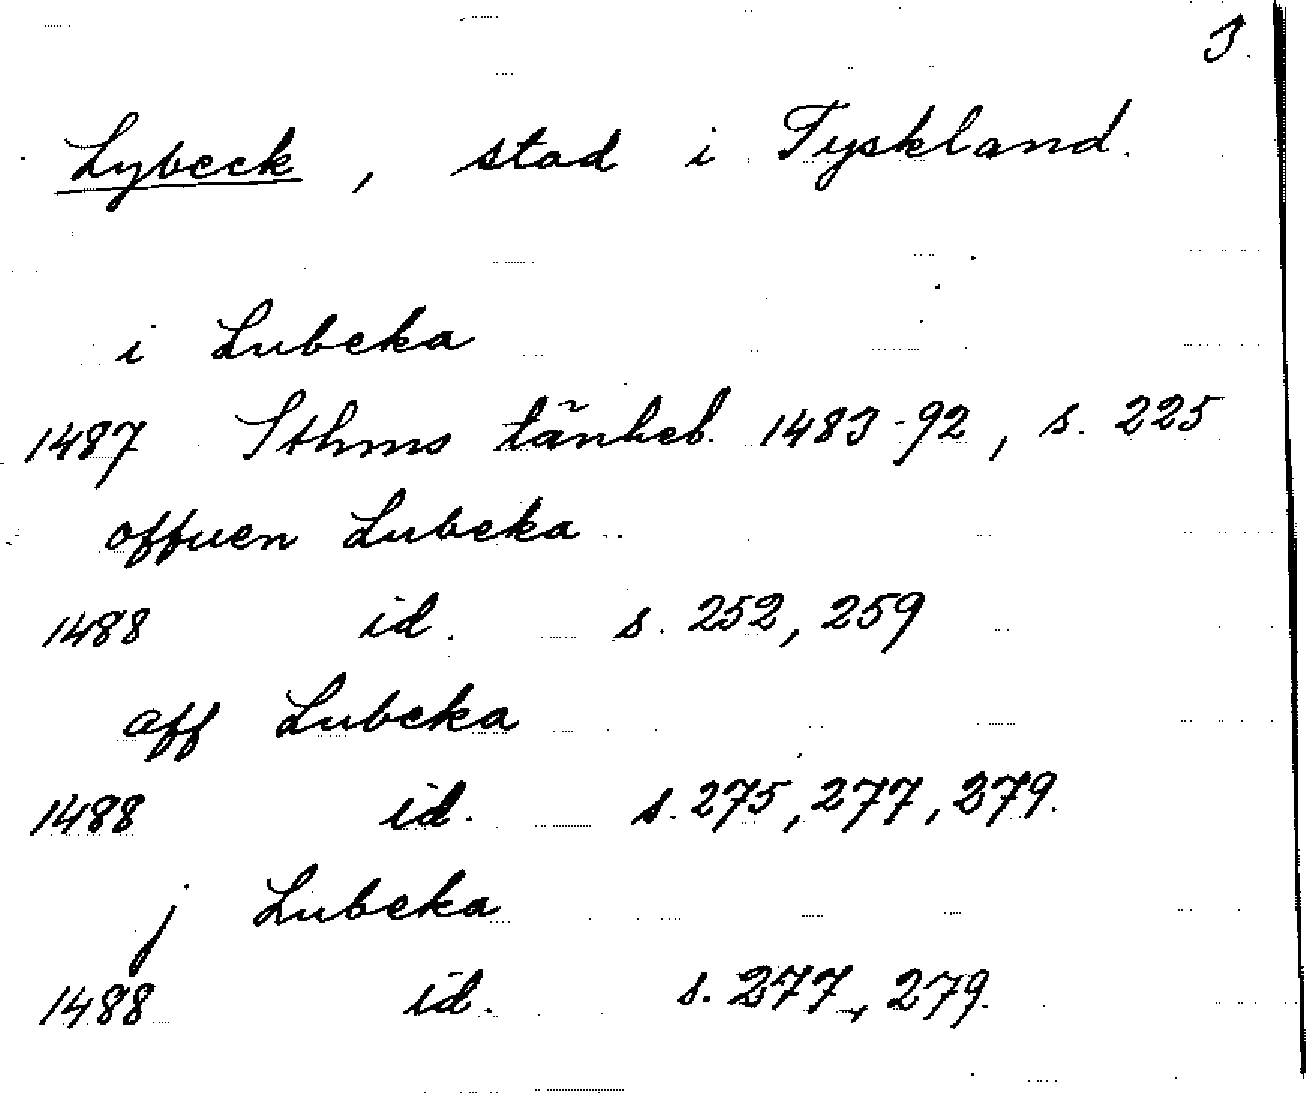 3.
Lybeck, stad i Tyskland.
i Lubcka
1487 Sthms tänkeb. 1483-92, s. 225
offuen Lubcka
1488 id. s. 252, 259
aff Lubcka
1488 id. s. 275, 277, 279.
j Lubcka
1488 id. s. 277, 279.